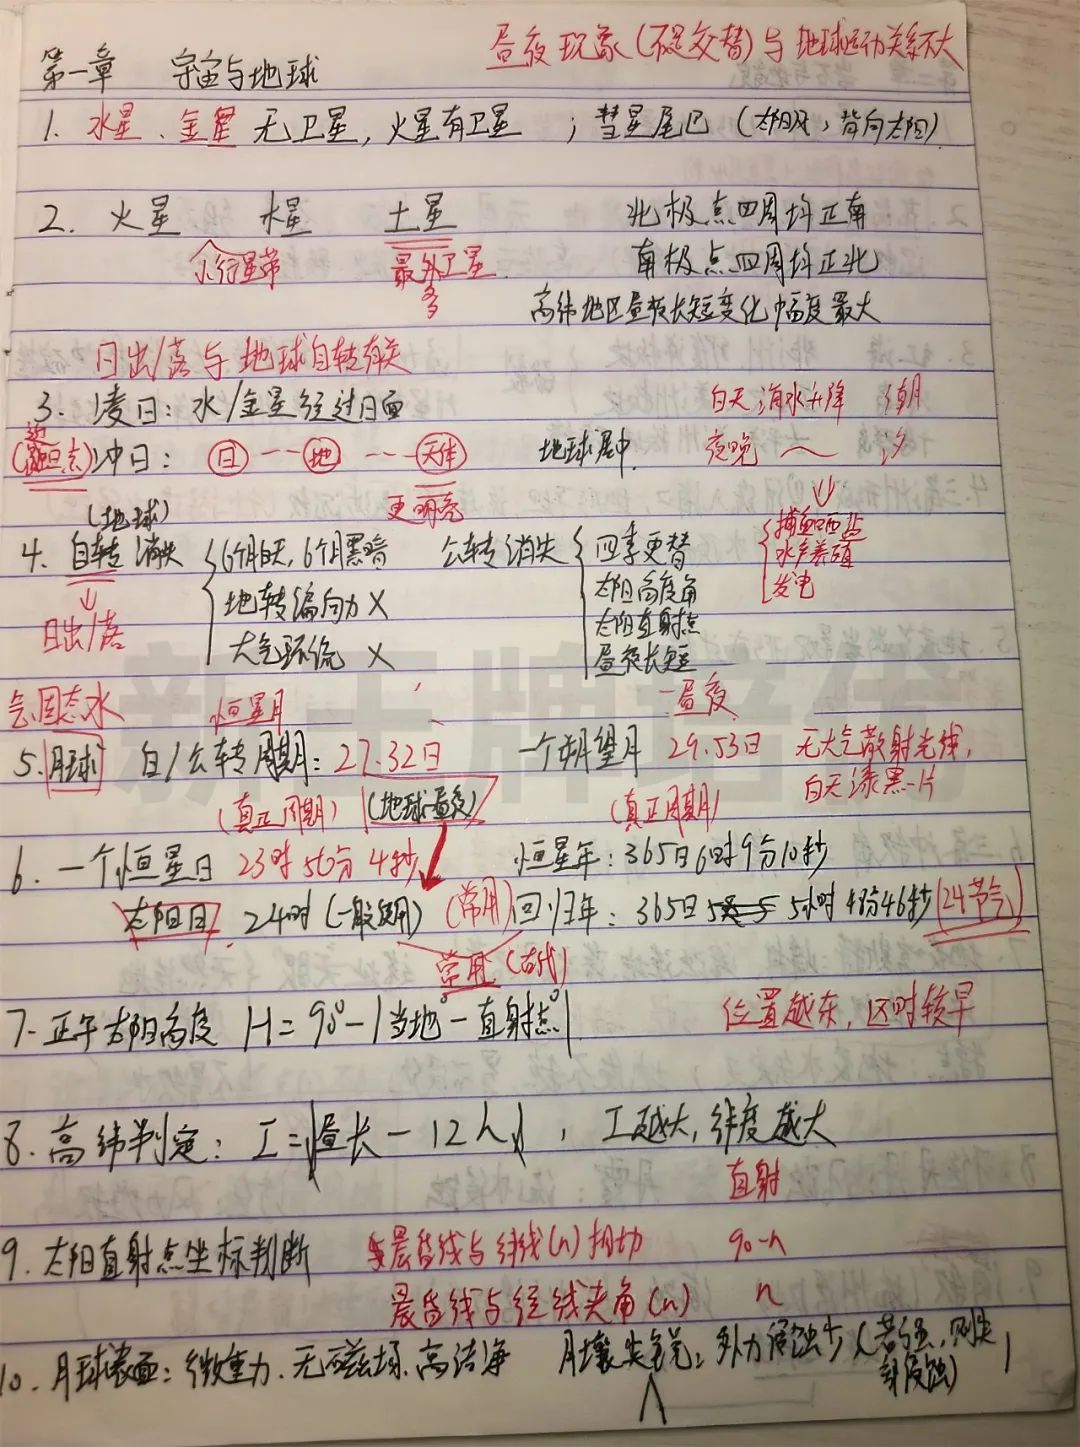 昼夜现象(不是交替)与地球运动关系不大
第一章 宇宙与地球
1. 水星、金星 无卫星，火星有卫星 ；彗星尾巴 (太阳风，背向太阳)
2. 火星 木星 土星 北极点四周均正南
小行星带 最外卫星 南极点四周均正北
多
高纬地区昼夜长短变化幅度最大
日出/落与地球自转有关
3. 凌日：水/金星经过日面 白天海水升降 潮
冲日： 日 --- 地 --- 天体 地球居中. 夜晚 ～ 汐
(地球) 更明亮
4. 自转消失 6个月白天，6个月黑暗 公转消失 四季更替 捕鱼晒盐
地转偏向力 × 太阳高度角 水产养殖
日出/落 太阳直射点 发电
大气环流 × 昼夜长短
气、固态水 恒星月 一昼夜
5. 月球 自/公转周期：27.32日 一个朔望月 29.53日 无大气散射光线，
(真正周期) (地球昼夜) (真正周期) 白天漆黑一片
6. 一个恒星日 23时56分4秒 恒星年：365日6时9分10秒
太阳日 24时 (一般使用) (常用)回归年：365日 5小时48分46秒 (24节气)
常用 (古代)
7. 正午太阳高度 H=90°-|当地°-直射点°| 位置越东，区时较早
8. 高纬判定：I=|昼长-12h|，I越大，纬度越大
直射
9. 太阳直射点坐标判断 晨昏线与纬线(n)相切 90-n
晨昏线与经线夹角(n) n
10. 月球表面：微重力、无磁场、高洁净 月壤尖锐：外力侵蚀少 (若强，则尖
部侵蚀)
新王牌培优